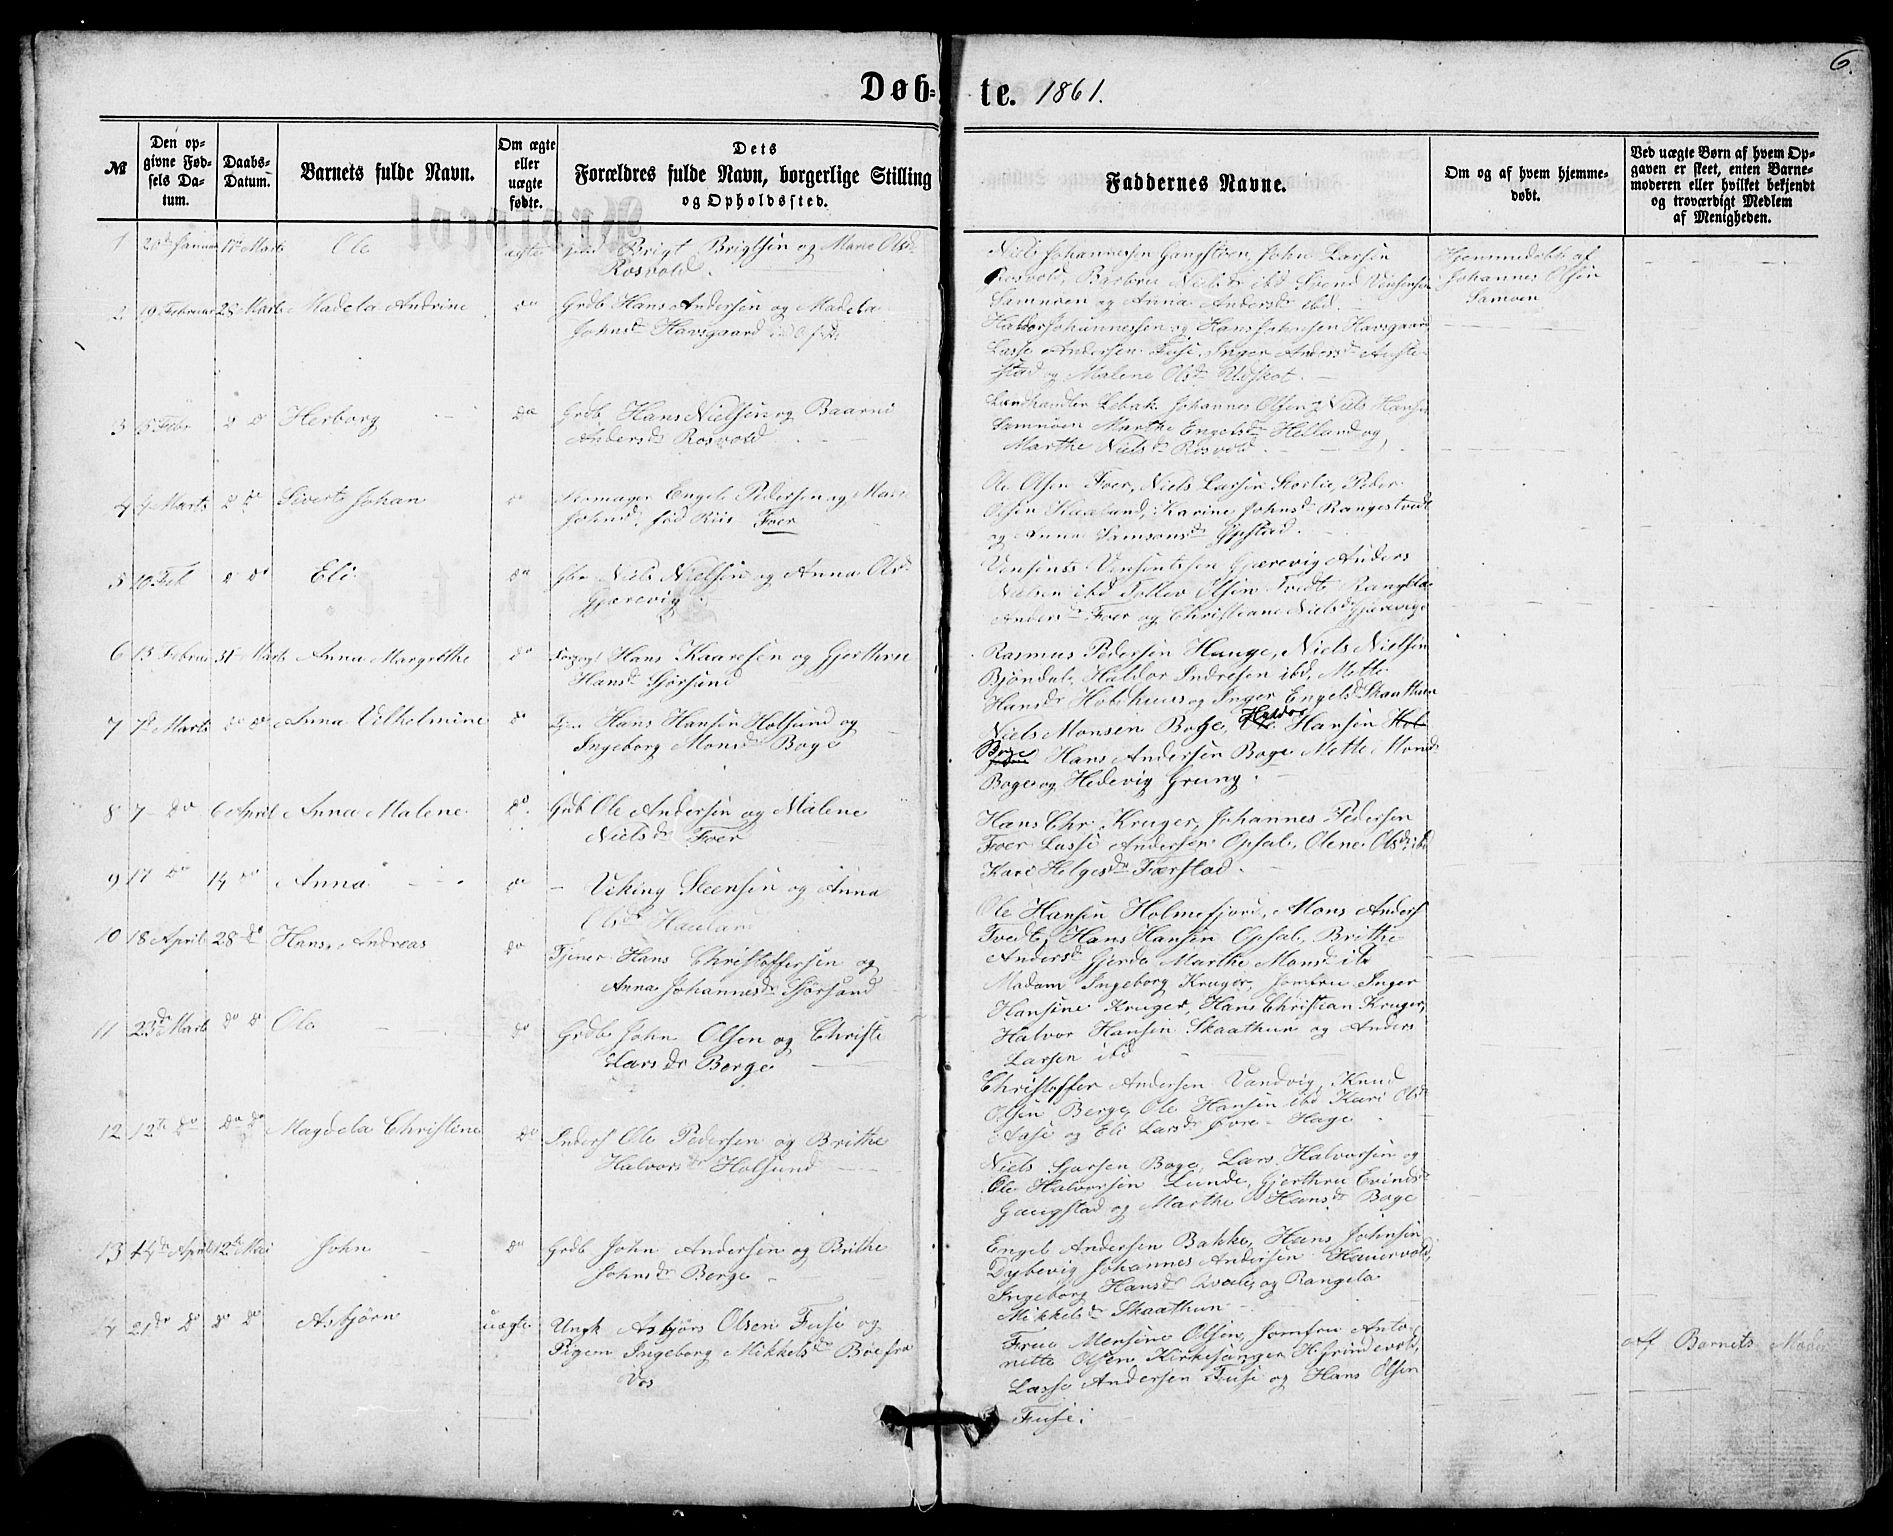 6.
Døb- te. 1861.
№
Den op-
givne Fød-
sels Da-
tum.
Daabs-
Datum.
Barnets fulde Navn.
Om ægte
eller
uægte
fødte.
Dets
Forældres fulde Navn, borgerlige Stilling
og Opholdssted.
Faddernes Navne.
Om og af hvem hjemme-
døbt.
Ved uægte Børn af hvem Op-
gaven er skeet, enten Barne-
moderen eller hvilket bekjendt
og troværdigt Medlem
af Menigheden.
1 Ole ægte Brigt Brigtsen og Marie Olsdr
Rosvold.
Niels Johannessen Gangstøen, John Larsen
Rosvold, Barbru Nielsdr ibd Svend Vinsensen
Samnøen og Anna Andersdr ibd.
Hjemmedøbt af
Johannes Olsen
Samøen
2 19 Februar 28 Marts Madela Andrine do Grdb Hans Andersen og Madela
Johnsdr Havsgaard
Haldor Johannessen og Hans Johnsen Havsgaard
Lasse Andersen Fuse, Inger Andersdr Auste-
stad og Malene Olsdr Udskot.
3 5 Febr d do Herborg do Grdb Hans Nielsen og Baarni
Andersdr Rosvold
Landhandler Lebak Johannes Olsen og Niels Hansen
Samnøen Marthe Engelsdr Helland og
Marthe Nielsdr Rosvold.
4 4 Marts d do Sivert Johan do Engel Pedersen og Mari
Johnsd. fød Riis Foer
Ole Olsen Foer, Niels Larsen Storlie, Peder
Olsen Kaaland, Karine Johnsdr Rangestvedt
og Anna Samsonsdr Gjøstad.
5 10 Feb d do Eli do Niels Nielsen og Anna Olsdr
Gjærevig.
Vinsents Vinsentssen Gjærevig Anders
Nielsen ibd Tollev Olsen Tvedt Rangela
Andersdr Foer og Christiane Nielsd Gjærevig
6 13 Februar 31 Marts Anna Margrethe do Hans Kaaresen og Gjerthru
Hansdr Sjørsund
Rasmus Pedersen Hauge, Niels Nielsen
Bjøndal, Haldor Indresen ibd, Mette
Hansdr Holdhuus og Inger Engelsdr Skaathun
7 7d Marts d do Anna Vilhelmine do Hans Hansen Holsund og
Ingeborg Monsdr Boge
Niels Monsen Boge, Haldor Hansen
Boge Hans Andersen Boge Mette Monsdr
Boge og Hedevig Grung.
8 7 - do 6 April Anna Malene do. Grdb Ole Andersen og Malene
Nielsdr Foer
Hans Chr. Kruger, Johannes Pedersen
Foer Lasse Andersen Opsal, Olene Olsdr ibd
Kari Helgesdr Færstad.
9 17 do 14 do Anna do - Viking Steensen og Anna
Olsdr
Ole Hansen Holmefjord, Mons Anders
Tvedt, Hans Hansen Opsal, Brithe
Andersdr Gjerde Marthe Monsdr ibd
10 18 April 28 do Hans Andreas do Tjener Hans Christoffersen og
Anna Johannesdr Sjørsand
Madam Ingeborg Kruger, Jomfru Inger
Hansine Kruger, Hans Christian Kruger,
Halvor Hansen Skaathun og Anders
Larsen ibd
11 23de Marts do do Ole do Grdb John Olsen og Christi
Larsdr Berge
Christoffer Andersen Vandvig, Knud
Olsen Berge, Ole Hansen ibd Kari Olsdr
Aase og Eli Larsdr Øvre-Hage
12 12te do do do Magdela Christine do Inders Ole Pedersen og Brithe
Halvorsdr Holsund
Niels Sjorsen Boge, Lars Halvorsen og
Ole Halvorsen Lunde, Gjerthru Evindsdr
Gaugstad og Marthe Hansdr Boge
13 14de April 12te Mai John do Grdb John Andersen og Brithe
Johnsdr Berge
Engel Andersen Bakke, Hans Johnsen
Dybevig Johannes Andersen Hauervold,
Ingeborg Hansdr og Rangela
Mikkelsdr Skaathun
14 21de do do do Asbjørn uægte Ungk Asbjørs Olsen Fuse og
Pigen Ingeborg Mikkelsdr Bøe fra
Vos
Frue Mensine Olsen, Jomfru Anto-
nette Olsen, Kirkesanger H. Grindevold,
Lasse Andersen Fuse og Hans Olsen
Fuse.
Af Barnets Mode